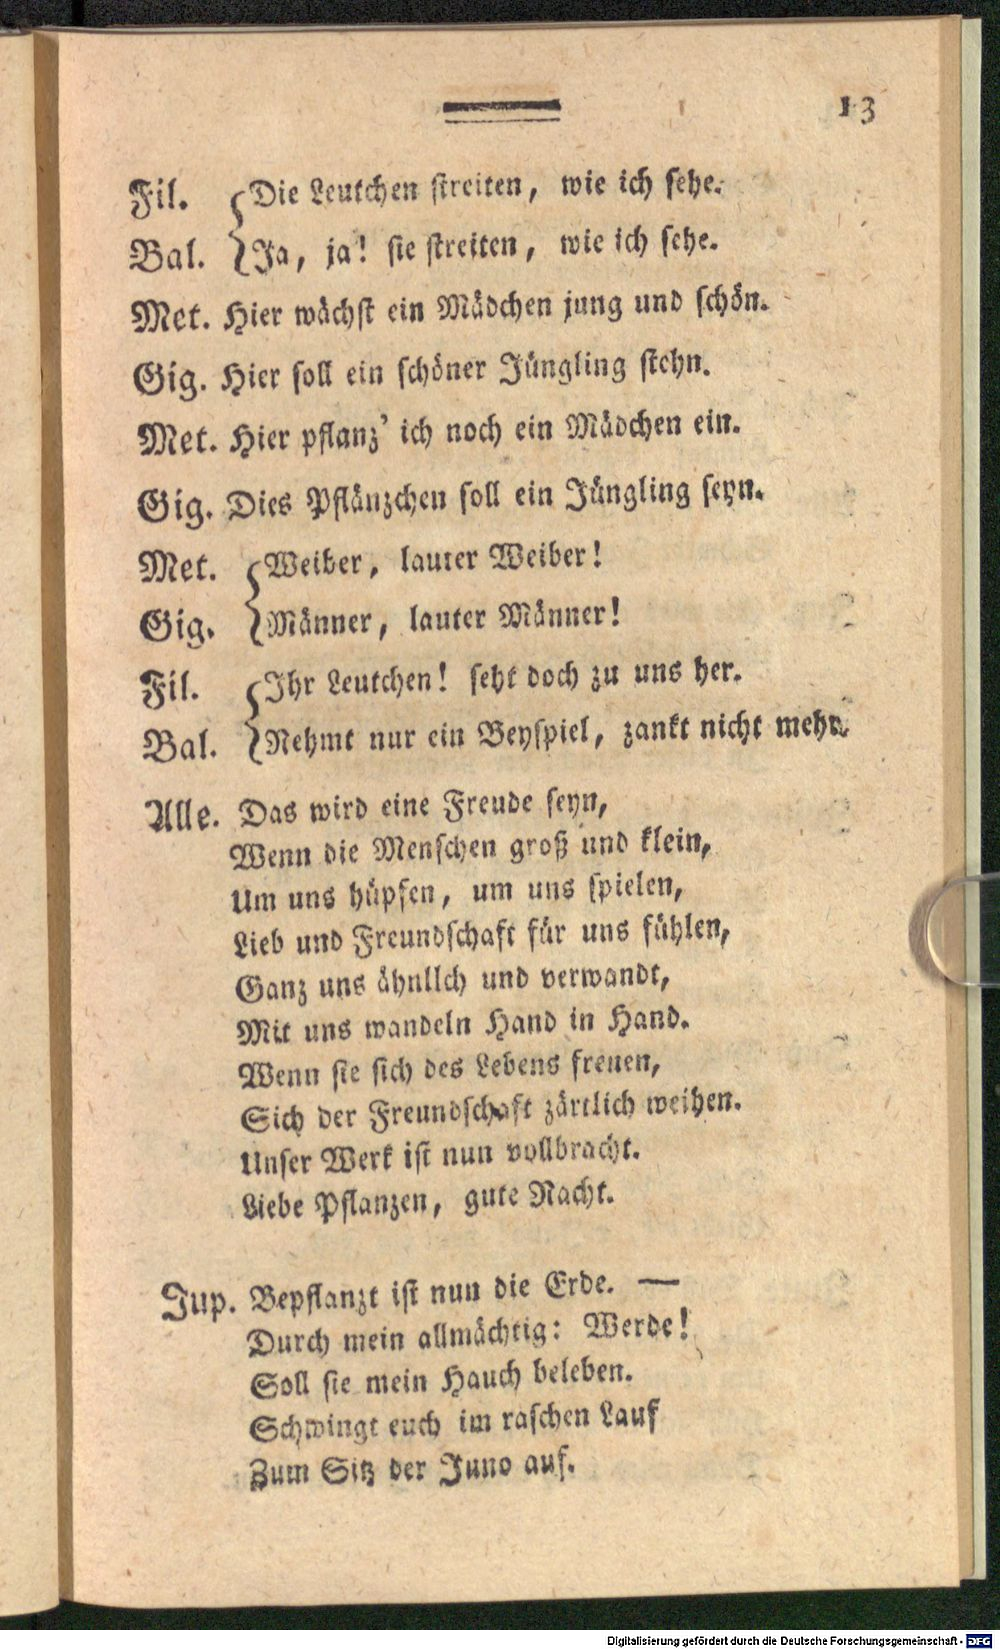 13
Fil. Die Leutchen streiten, wie ich sehe.
Bal. Ja, ja! sie streiten, wie ich sehe.
Met. Hier wächst ein Mädchen jung und schön.
Gig. Hier soll ein schöner Jüngling stehn.
Met. Hier pflanz' ich noch ein Mädchen ein.
Gig. Dies Pflänzchen soll ein Jüngling seyn.
Met. Weiber, lauter Weiber!
Gig. Männer, lauter Männer!
Fil. Ihr Leutchen! seht doch zu uns her.
Bal. Nehmt nur ein Beyspiel, zankt nicht mehr.
Alle. Das wird eine Freude seyn,
Wenn die Menschen groß und klein,
Um uns hüpfen, um uns spielen,
Lieb und Freundschaft für uns fühlen,
Ganz uns ähnllch und verwandt,
Mit uns wandeln Hand in Hand.
Wenn sie sich des Lebens freuen,
Sich der Freundschaft zärtlich weihen.
Unser Werk ist nun vollbracht.
Liebe Pflanzen, gute Nacht.
Jup. Bepflanzt ist nun die Erde. —
Durch mein allmächtig: Werde!
Soll sie mein Hauch beleben.
Schwingt euch im raschen Lauf
Zum Sitz der Juno auf.
Digitalisierung gefördert durch die Deutsche Forschungsgemeinschaft - DFG